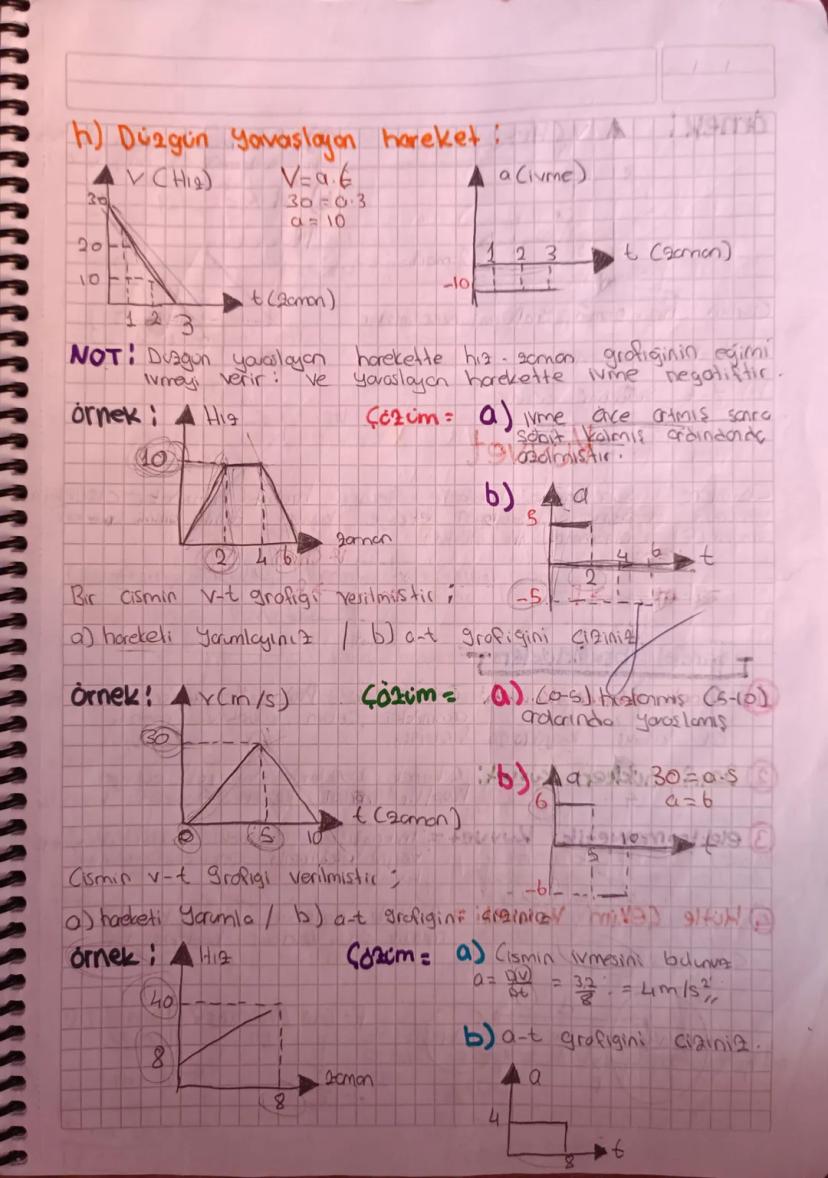 h) Düzgün yavaşlayan hareket:
V (Hız)
V=a.t
30=a.3
a=10
30
20
10
1 2 3
t (zaman)
a (ivme)
1 2 3
t (zaman)
-10
NOT! Düzgün yavaşlayan harekette hız-zaman grafiğinin eğimi
ivmeyi verir: ve yavaşlayan harekette ivme negatiftir.
örnek: Hız
10
2 4 6
zaman
Çözüm= a) ivme önce artmış sonra
sabit kalmış ardından da
azalmıştır.
b) a
5
2 4 6 t
-5
Bir cismin v-t grafiği verilmiştir;
a) hareketi yorumlayınız / b) a-t grafiğini çiziniz
örnek! v(m/s)
30
0 5 10
t (zaman)
Çözüm= a) (0-5) hızlanmış (5-10)
aralarında yavaşlamış
b) a
30=a.5
a=6
6
5 10 t
-6
Cismin v-t grafiği verilmiştir;
a) hareketi yorumla / b) a-t grafiğini çiziniz
örnek: Hız
40
8
8
zaman
Çözüm= a) Cismin ivmesini bulunuz
a= ΔV/Δt = 32/8 = 4m/s²,,
b) a-t grafiğini çiziniz.
a
4
8 t